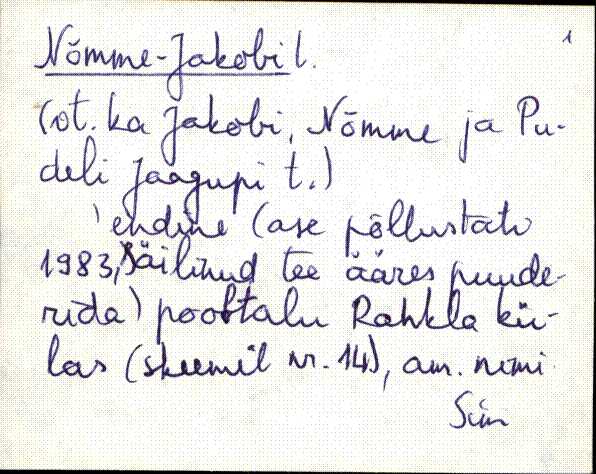 1
Nõmme-Jakobi t.
(vt. ka Jakobi, Nõmme ja Pu-
deli Jaagupi t.)
endine (ase põllustatu
1983, säilinud tee ääres puude-
rida) pooltalu Rahkla kü-
las (skeemil nr. 14), am. nimi
Sim